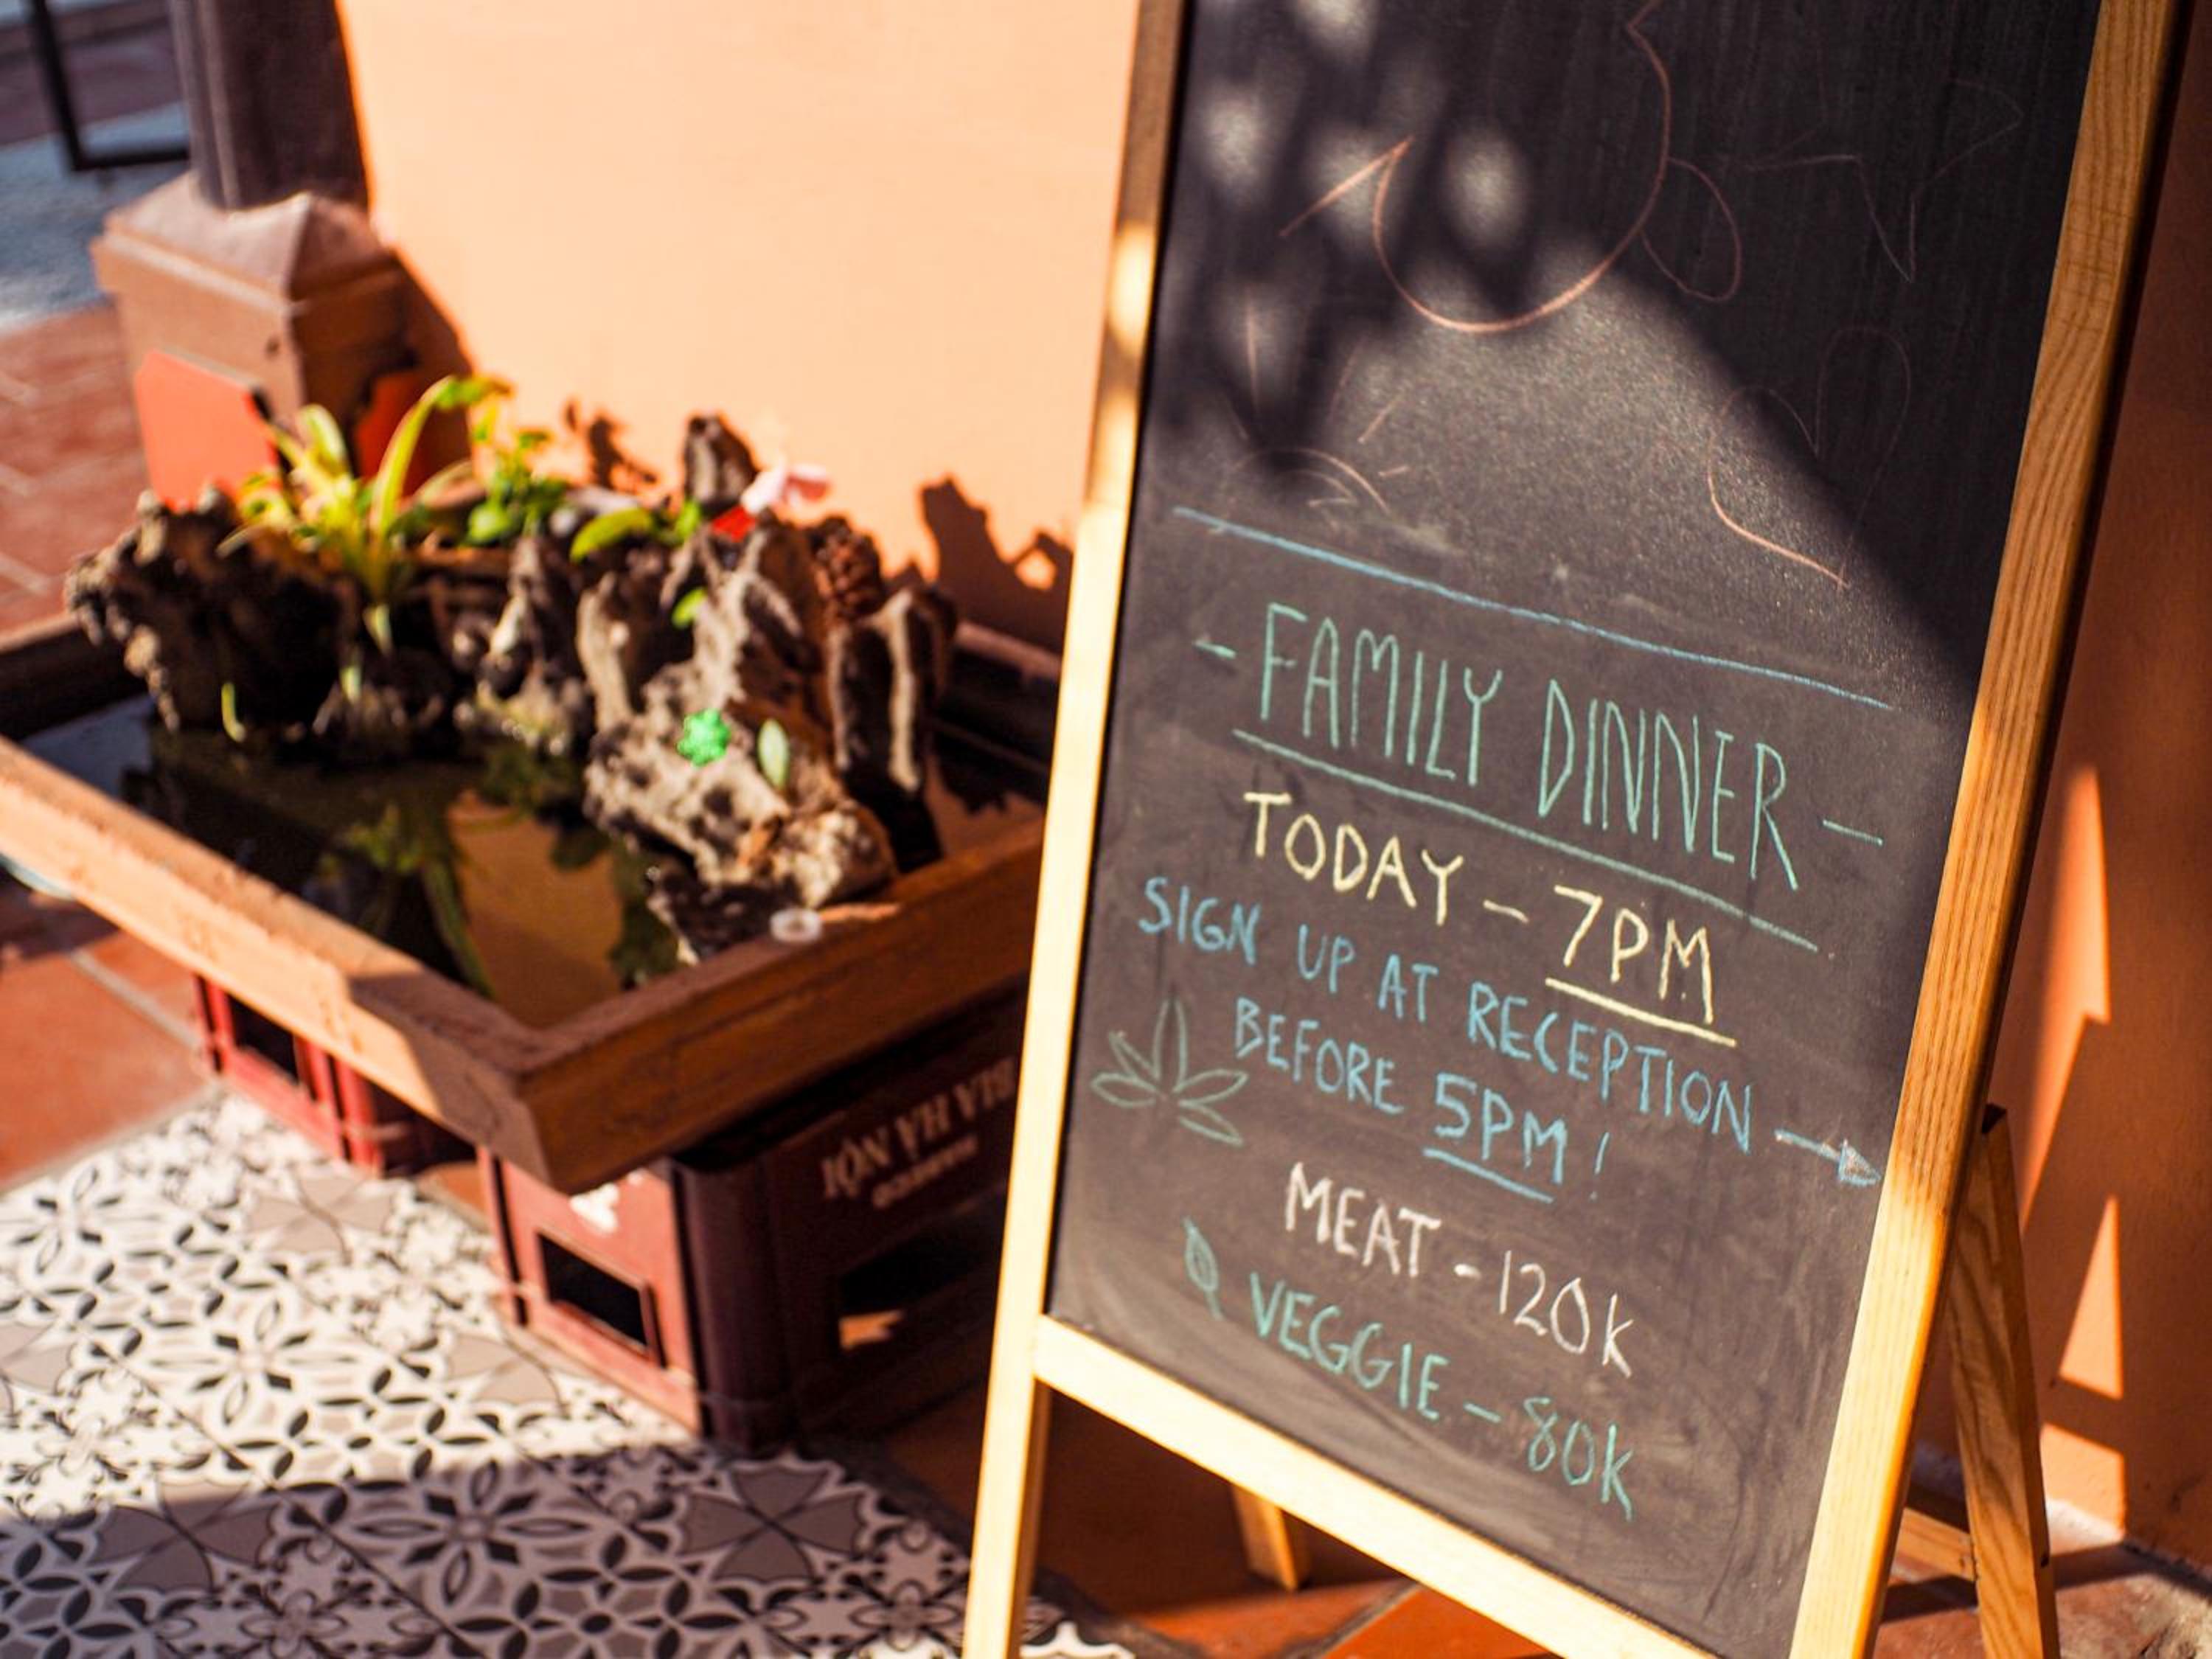 - FAMILY DINNER -
TODAY - 7PM
SIGN UP AT RECEPTION →
BEFORE 5PM!
MEAT - 120K
VEGGIE - 80K